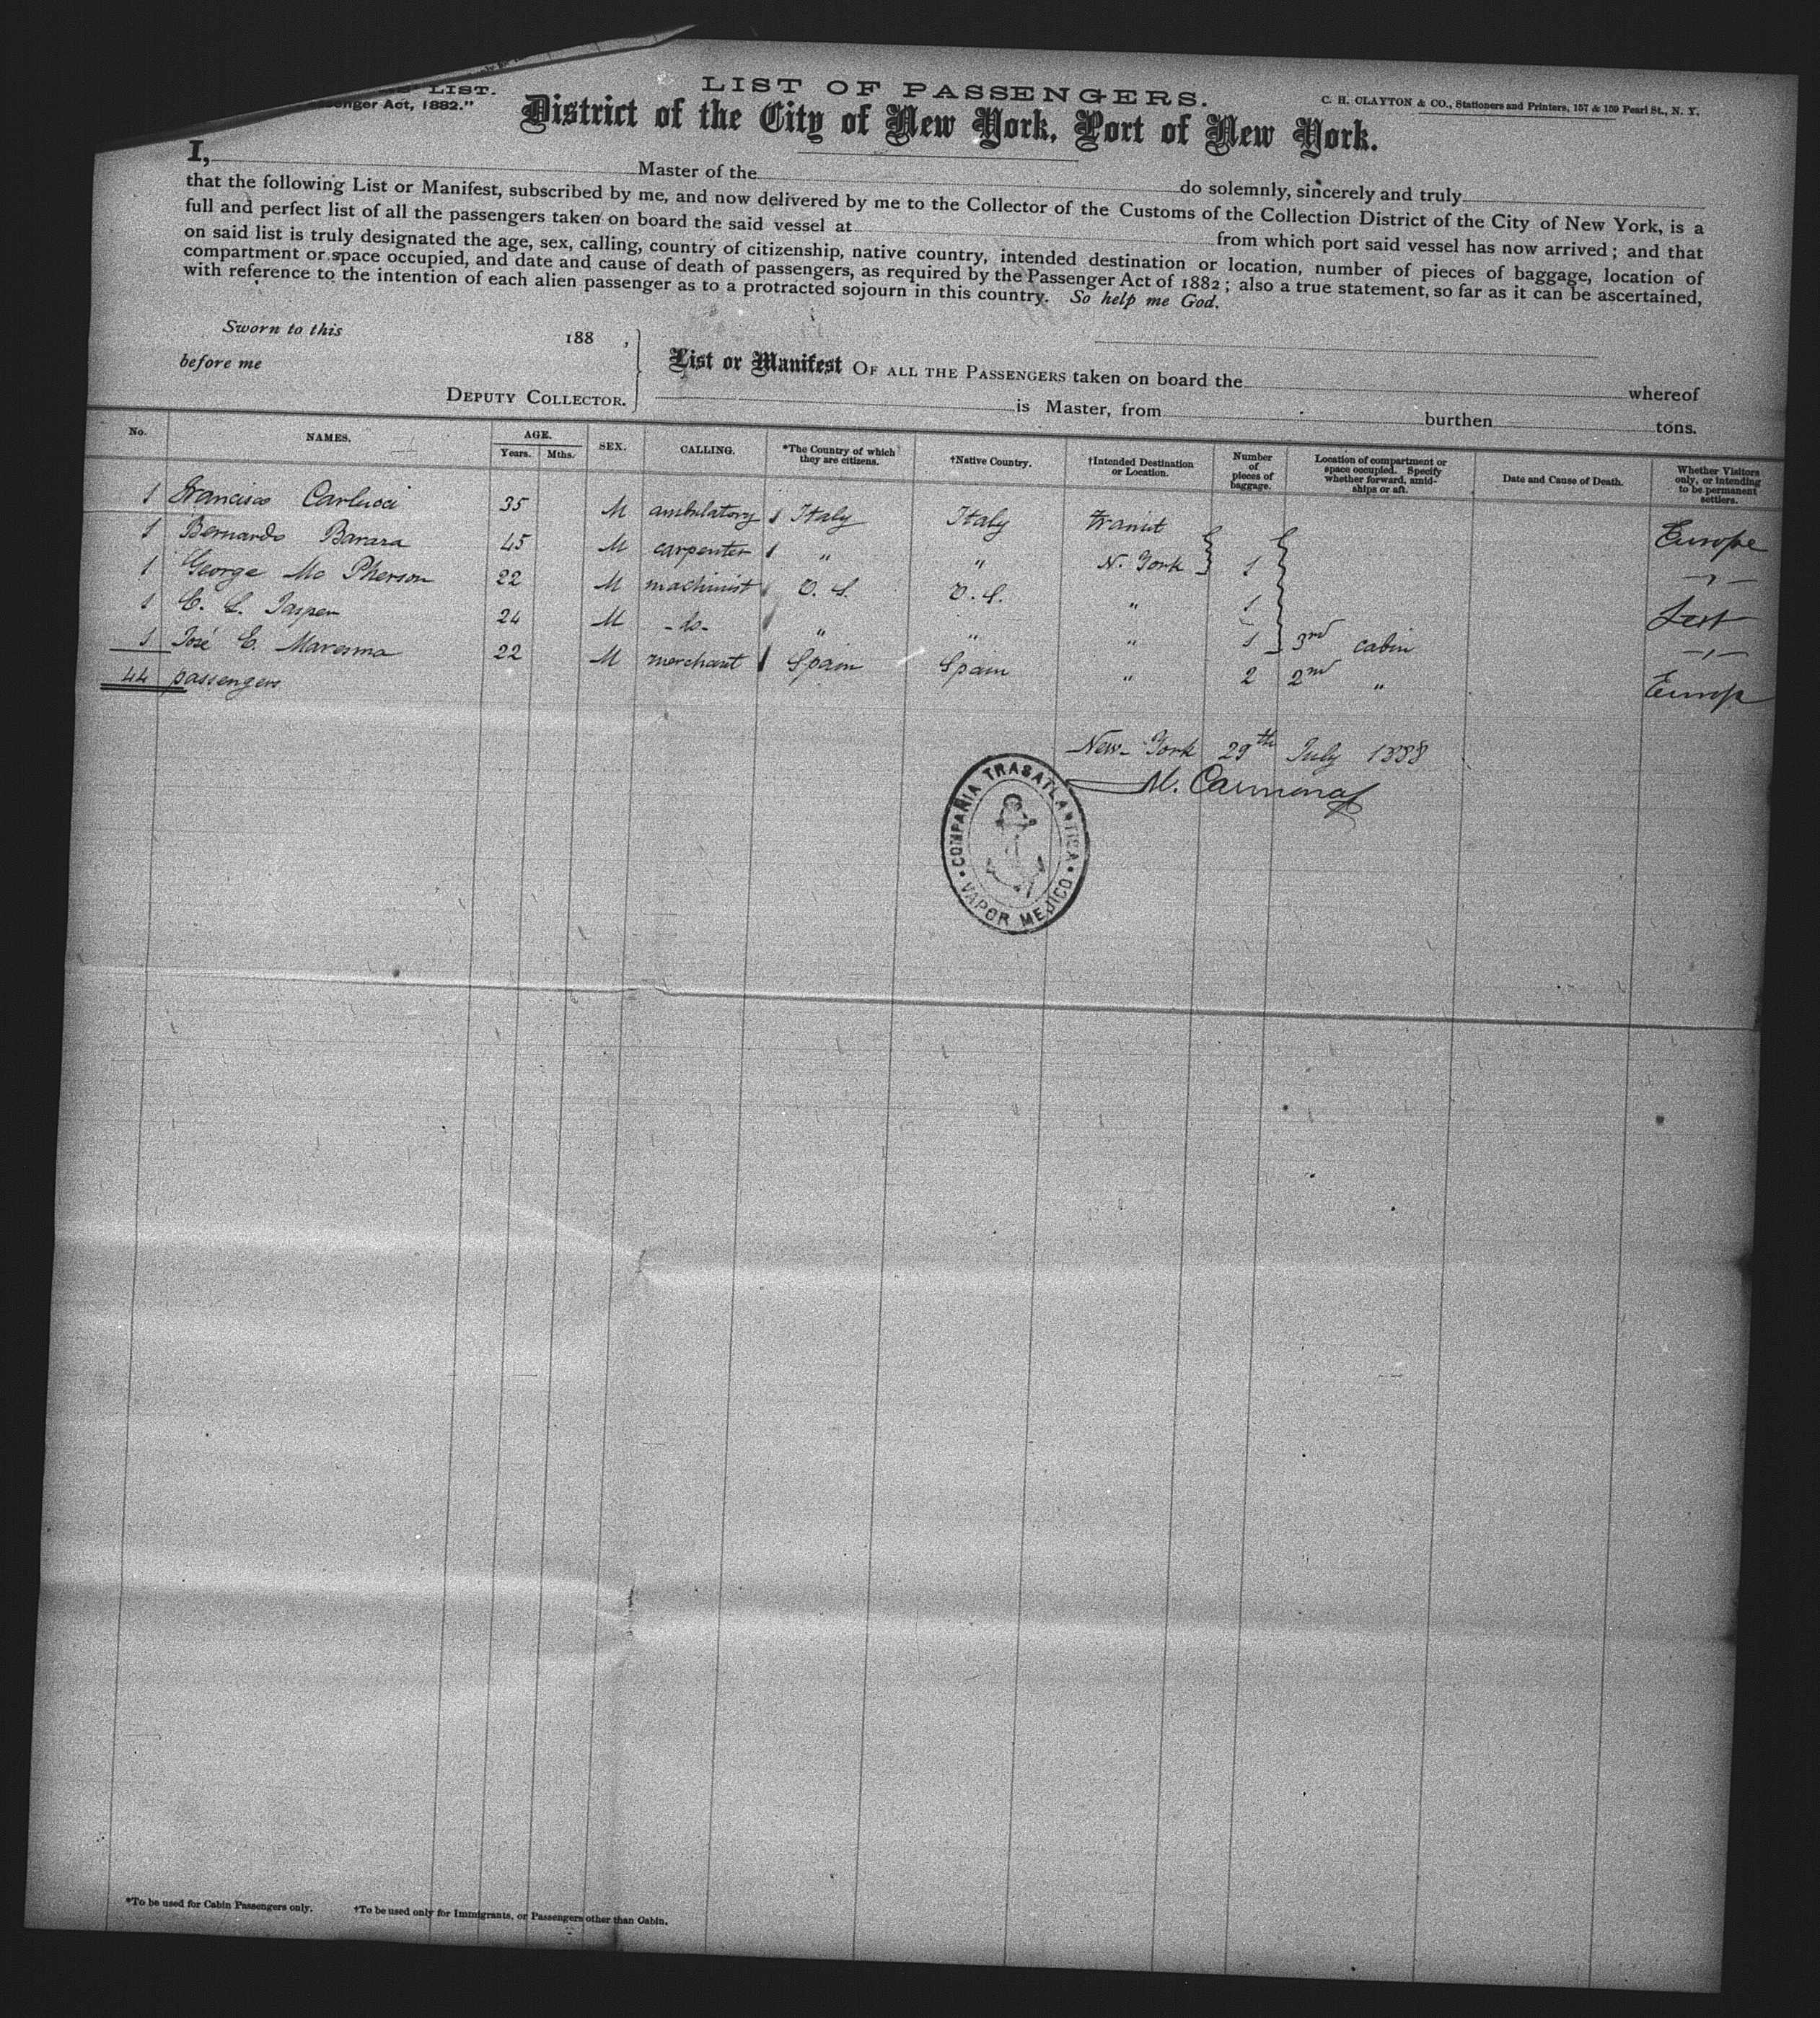 LIST.
senger Act, 1882."
LIST OF PASSENGERS.
C. H. CLAYTON & CO., Stationers and Printers, 157 & 159 Pearl St., N. Y.
District of the City of New York, Port of New York.
I, Master of the do solemnly, sincerely and truly
that the following List or Manifest, subscribed by me, and now delivered by me to the Collector of the Customs of the Collection District of the City of New York, is a
full and perfect list of all the passengers taken on board the said vessel at from which port said vessel has now arrived; and that
on said list is truly designated the age, sex, calling, country of citizenship, native country, intended destination or location, number of pieces of baggage, location of
compartment or space occupied, and date and cause of death of passengers, as required by the Passenger Act of 1882; also a true statement, so far as it can be ascertained,
with reference to the intention of each alien passenger as to a protracted sojourn in this country. So help me God.
Sworn to this 188 ,
before me
DEPUTY COLLECTOR.
List or Manifest OF ALL THE PASSENGERS taken on board the whereof
is Master, from burthen tons.
No. NAMES. AGE. Years. Mths. SEX. CALLING. *The Country of which they are citizens. †Native Country. †Intended Destination or Location. Number of pieces of baggage. Location of compartment or space occupied. Specify whether forward, amidships or aft. Date and Cause of Death. Whether Visitors only, or intending to be permanent settlers.
1 Francisco Carlucci 35 M ambulatory 1 Italy Italy transit Europe
1 Bernardo Barara 45 M carpenter 1 " " N. York 1 – " –
1 George Mc Pherson 22 M machinist 1 U. S. U. S. " 1
1 C. L. Jasper 24 M - do - 1 " " " 1 3rd cabin – " –
1 José E. Maresma 22 M merchant 1 Spain Spain " 2 2nd " Europe
44 passengers
New-York 29th July 1888
M. Carmona
COMPAÑIA TRASATLANTICA
VAPOR MEJICO
*To be used for Cabin Passengers only. †To be used only for Immigrants, or Passengers other than Cabin.